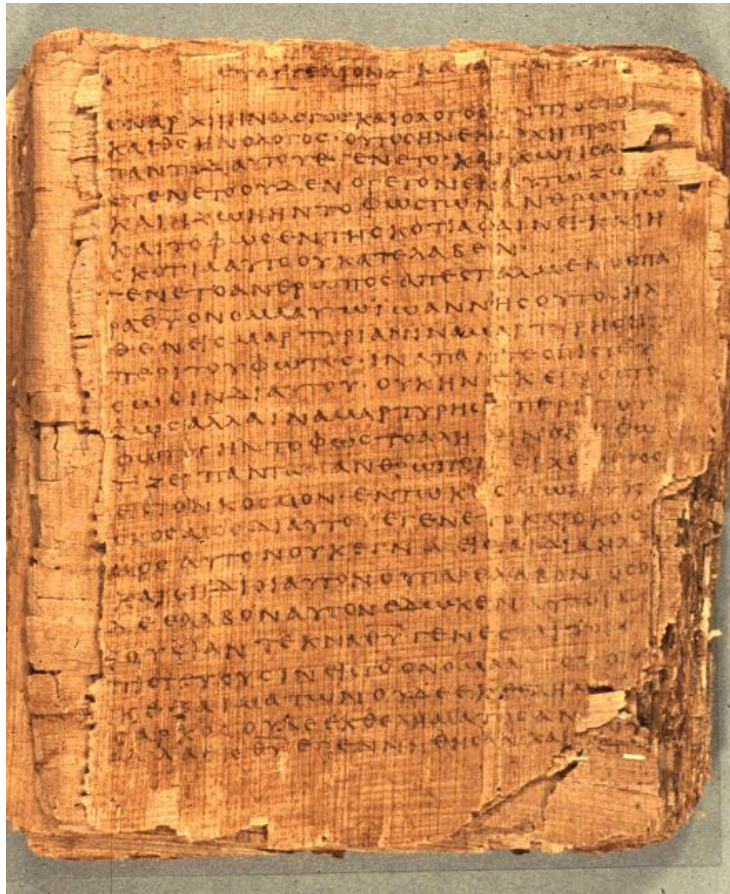 ευαγγελιον κατα
εν αρχη ην ο λογος και ο λογος ην προς το
και θς ην ο λογος · ουτος ην εν αρχη προς
παντα δι αυτου εγενετο · και χωρις
εγενετο ουδεν ο γεγονεν εν αυτω
και η ζωη ην το φως των ανθρωπω
και το φως εν τη σκοτια φαινει και η
σκοτια αυτο ου κατελαβεν ·
γενετο ανθρωπος απεσταλμενος πα
ρα θυ ονομα αυτω ιωαννης ουτος ηλ
θεν εις μαρτυριαν ινα μαρτυρηση
περι του φωτος · ινα παντες πιστευ
σωσιν δι αυτου · ουκ ην εκεινος το
φως αλλα ινα μαρτυρηση περι του
φωτος ην το φως το αληθινον ο φω
τιζει παντα ανθρωπον ερχομενον
εις τον κοσμον · εν τω κοσμω ην και
ο κοσμος δι αυτου εγενετο και ο κο
σμος αυτον ουκ εγνω εις τα ιδια ηλ
και οι ιδιοι αυτον ου παρελαβον οσοι
δε ελαβον αυτον εδωκεν αυτοις
εξουσιαν τεκνα θυ γενεσθαι τοις
πιστευουσιν εις το ονομα αυτου οι
ουκ εξ αιματων ουδε εκ θεληματος
σαρκος ουδε εκ θεληματος αν
αλλα εκ θυ εγεννηθησαν και